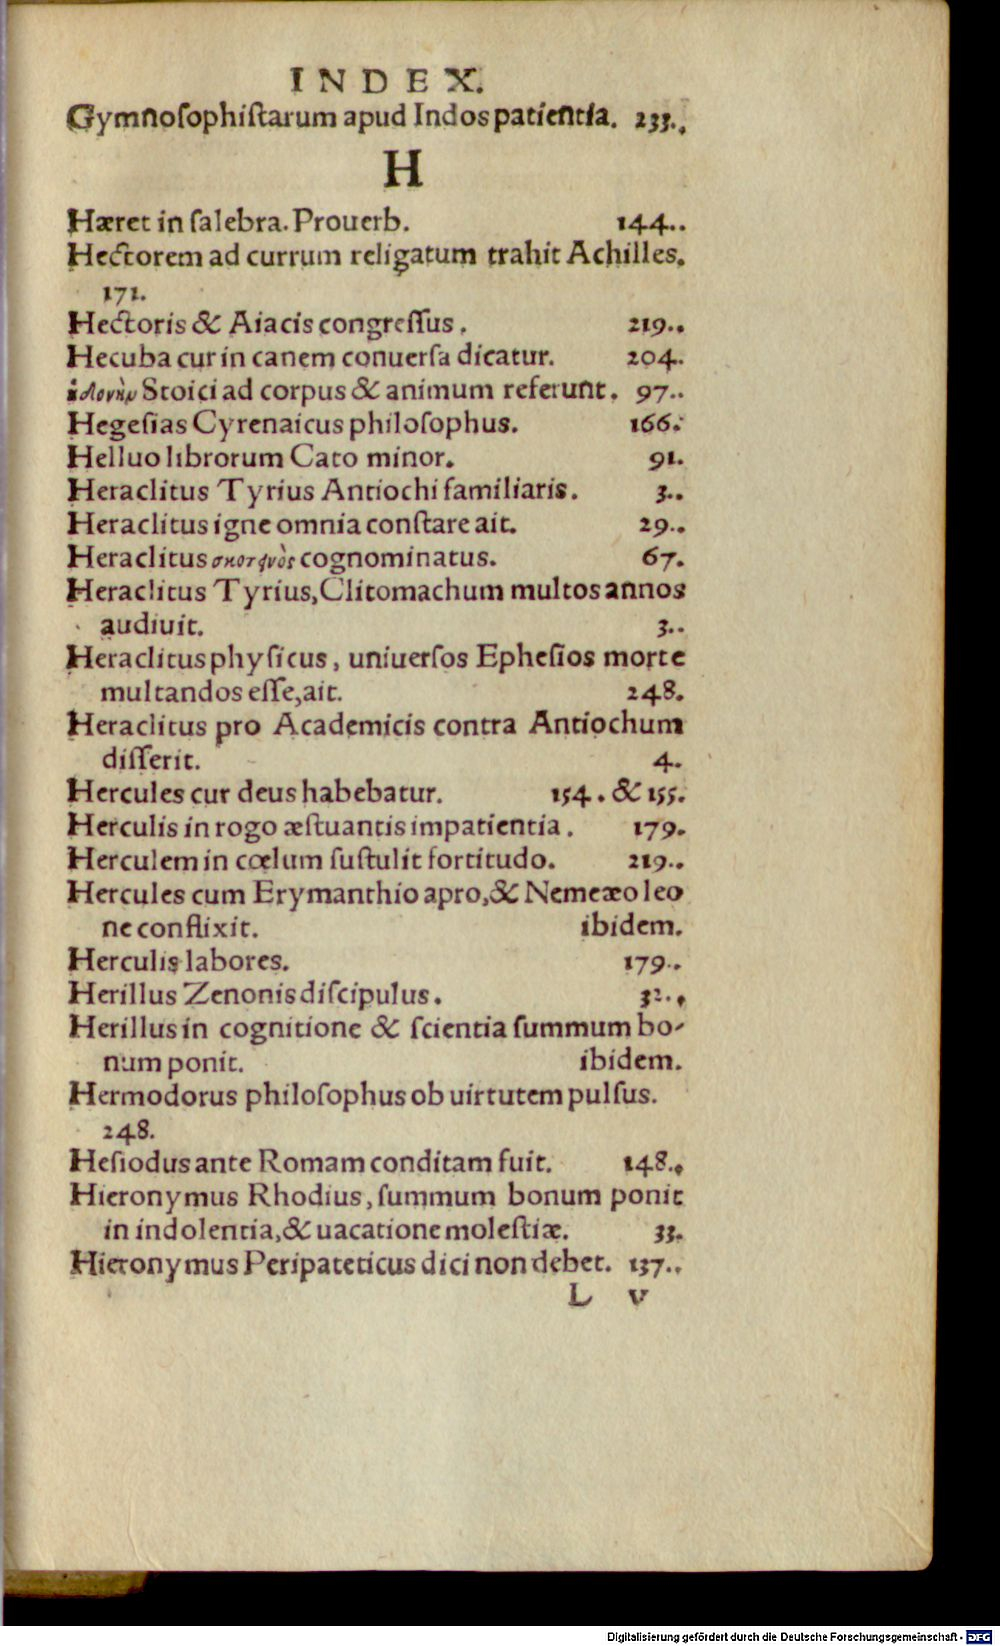 INDEX.
Gymnoſophiſtarum apud Indos patientia. 233..
H
Hæret in ſalebra. Prouerb. 144..
Hectorem ad currum religatum trahit Achilles.
171.
Hectoris & Aiacis congreſſus. 219..
Hecuba cur in canem conuerſa dicatur. 204.
ἡδονὴν Stoici ad corpus & animum referunt. 97..
Hegeſias Cyrenaicus philoſophus. 166.
Helluo librorum Cato minor. 91.
Heraclitus Tyrius Antiochi familiaris. 3..
Heraclitus igne omnia conſtare ait. 29..
Heraclitus σκοτεινὸς cognominatus. 67.
Heraclitus Tyrius, Clitomachum multos annos
audiuit. 3..
Heraclitus phyſicus, uniuerſos Epheſios morte
multandos eſſe, ait. 248.
Heraclitus pro Academicis contra Antiochum
diſſerit. 4.
Hercules cur deus habebatur. 154. & 155.
Herculis in rogo æſtuantis impatientia. 179.
Herculem in cœlum ſuſtulit fortitudo. 219..
Hercules cum Erymanthio apro, & Nemeæo leo
ne conflixit. ibidem.
Herculis labores. 179..
Herillus Zenonis diſcipulus. 32..
Herillus in cognitione & ſcientia ſummum bo-
num ponit. ibidem.
Hermodorus philoſophus ob uirtutem pulſus.
248.
Heſiodus ante Romam conditam fuit. 148..
Hieronymus Rhodius, ſummum bonum ponit
in indolentia, & uacatione moleſtiæ. 33.
Hieronymus Peripateticus dici non debet. 137..
L v
Digitalisierung gefördert durch die Deutsche Forschungsgemeinschaft - DFG